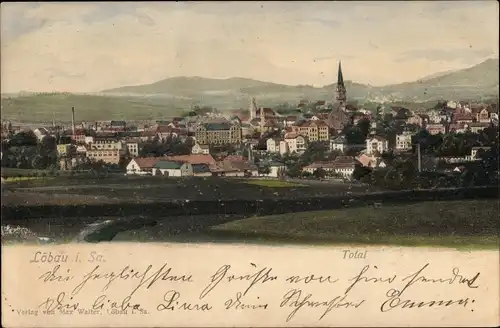 Löbau i. Sa.
Total
die herzlichsten Grüße von hier sendet
Dir liebe Liura Deine Schwester Emma.
Verlag von Max Walter, Löbau i. Sa.